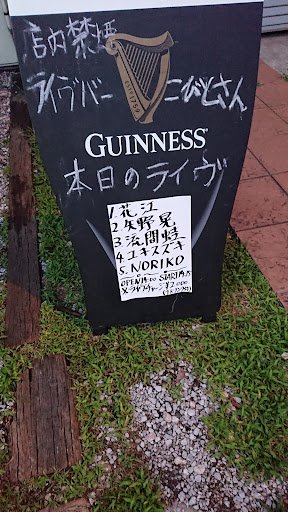 店内禁煙
ライヴバー こびとさん
GUINNESS
本日のライヴ
1. 花江
2. 矢野晃
3. 流間蛙
4. ユキスズキ
5. NORIKO
OPEN START